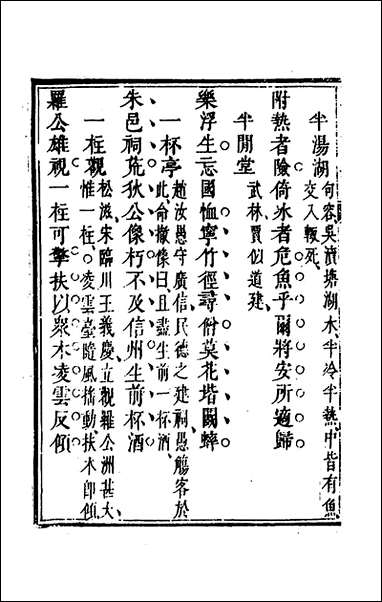 半湯湖
句容吳瀆塘湖水半冷半熱中皆有魚
交入輙死
附熱者險倚氷者危魚乎爾將安所適歸
半閒堂
武林賈似道建
樂浮生忘國恤寧竹徑尋僧莫花堦鬭蟀
一杯亭
趙汝愚守廣信民德之建祠愚觴客於
此命撤像曰且盡生前一杯酒
朱邑祠荒狄公像朽不及信州生前杯酒
一柱觀
松滋宋臨川王義慶立觀羅公洲甚大
惟一柱○凌雲臺隨風搖動扶木即傾
羅公雄視一柱可擎扶以眾木凌雲反傾